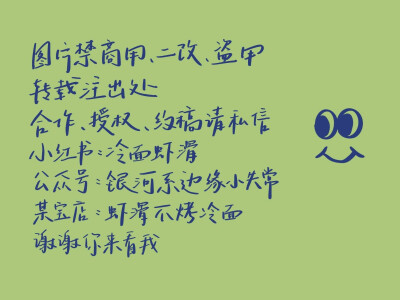 图片禁商用、二改、盗用
转载注出处
合作、授权、约稿请私信
小红书：冷面虾滑
公众号：银河系边缘小失常
某宝店：虾滑不烤冷面
谢谢你来看我